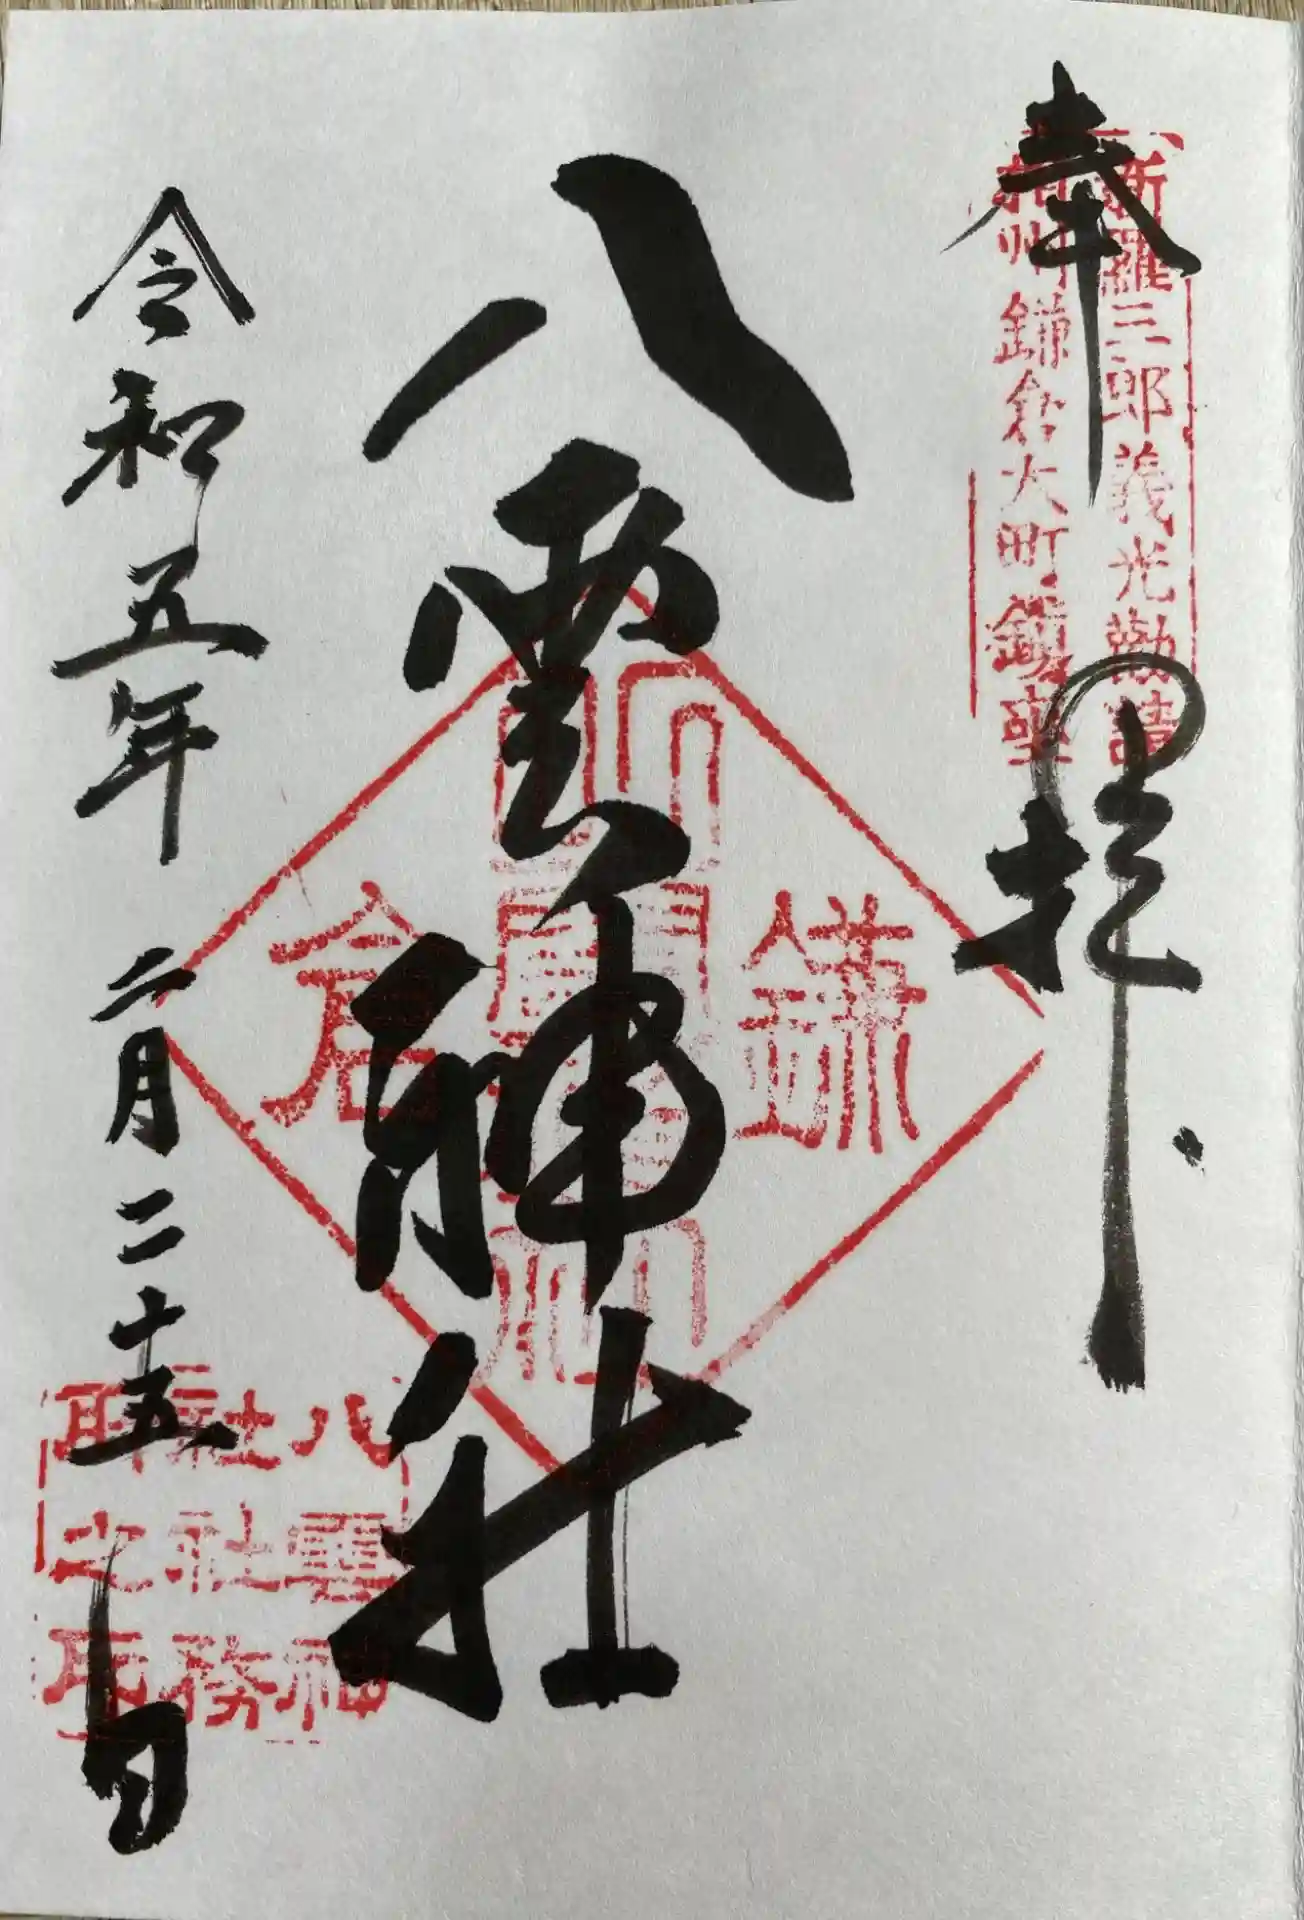 奉拝
新羅三郎義光勧請
相州鎌倉大町鎮座
八雲神社
鎌倉
八雲神
社社務
所之印
令和五年二月二十五日